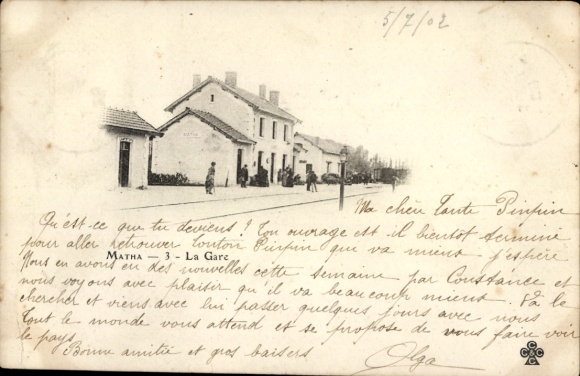 5/7/02
MATHA
Ma chère Tante Pinpin
Qu'est-ce que tu deviens ! Ton ouvrage est-il bientôt terminé
pour aller retrouver Tonton Pinpin que va mieux j'espère
MATHA — 3 - LA GARE
Nous en avons eu des nouvelles cette semaine par Constance et
nous voyons avec plaisir qu'il va beaucoup mieux. Va le
chercher et viens avec lui passer quelques jours avec nous
Tout le monde vous attend et se propose de vous faire voir
le pays
Bonne amitié et gros baisers
Olga
CCCC